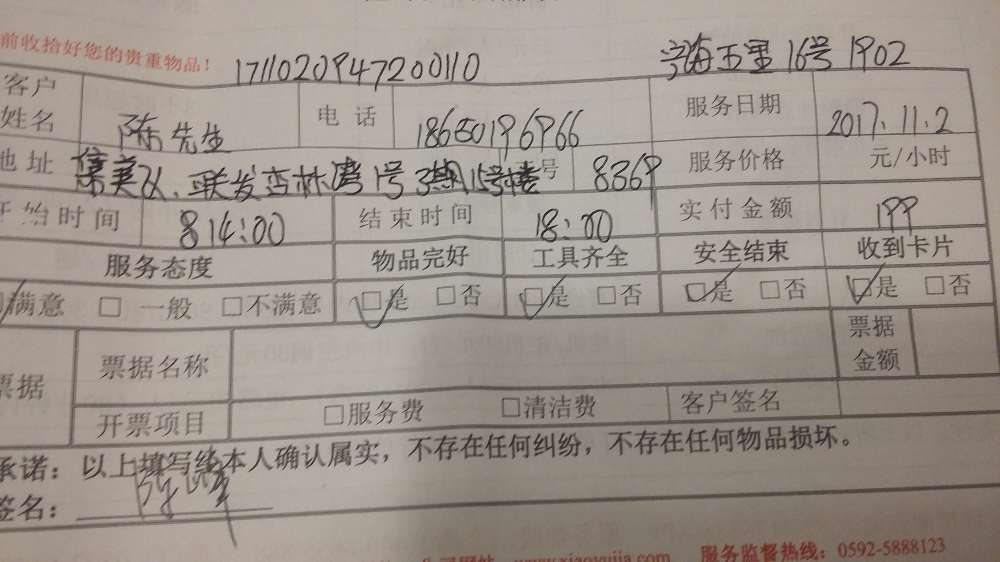 前收拾好您的贵重物品！
1711020947200110 宁海五里16号1902
客户姓名 陈先生 电话 18650196966 服务日期 2017.11.2
地址 集美区、联发杏林湾1号 15号楼 号 8369 服务价格 元/小时
开始时间 814:00 结束时间 18:00 实付金额 199
服务态度 物品完好 工具齐全 安全结束 收到卡片
☑满意 □ 一般 □不满意 ☑是 □否 ☑是 □否 ☑是 □否 ☑是 □否
票据 票据名称 票据金额
开票项目 □服务费 □清洁费 客户签名
承诺：以上填写经本人确认属实，不存在任何纠纷，不存在任何物品损坏。
签名：
www.xiaoyujia.com 服务监督热线：0592-5888123